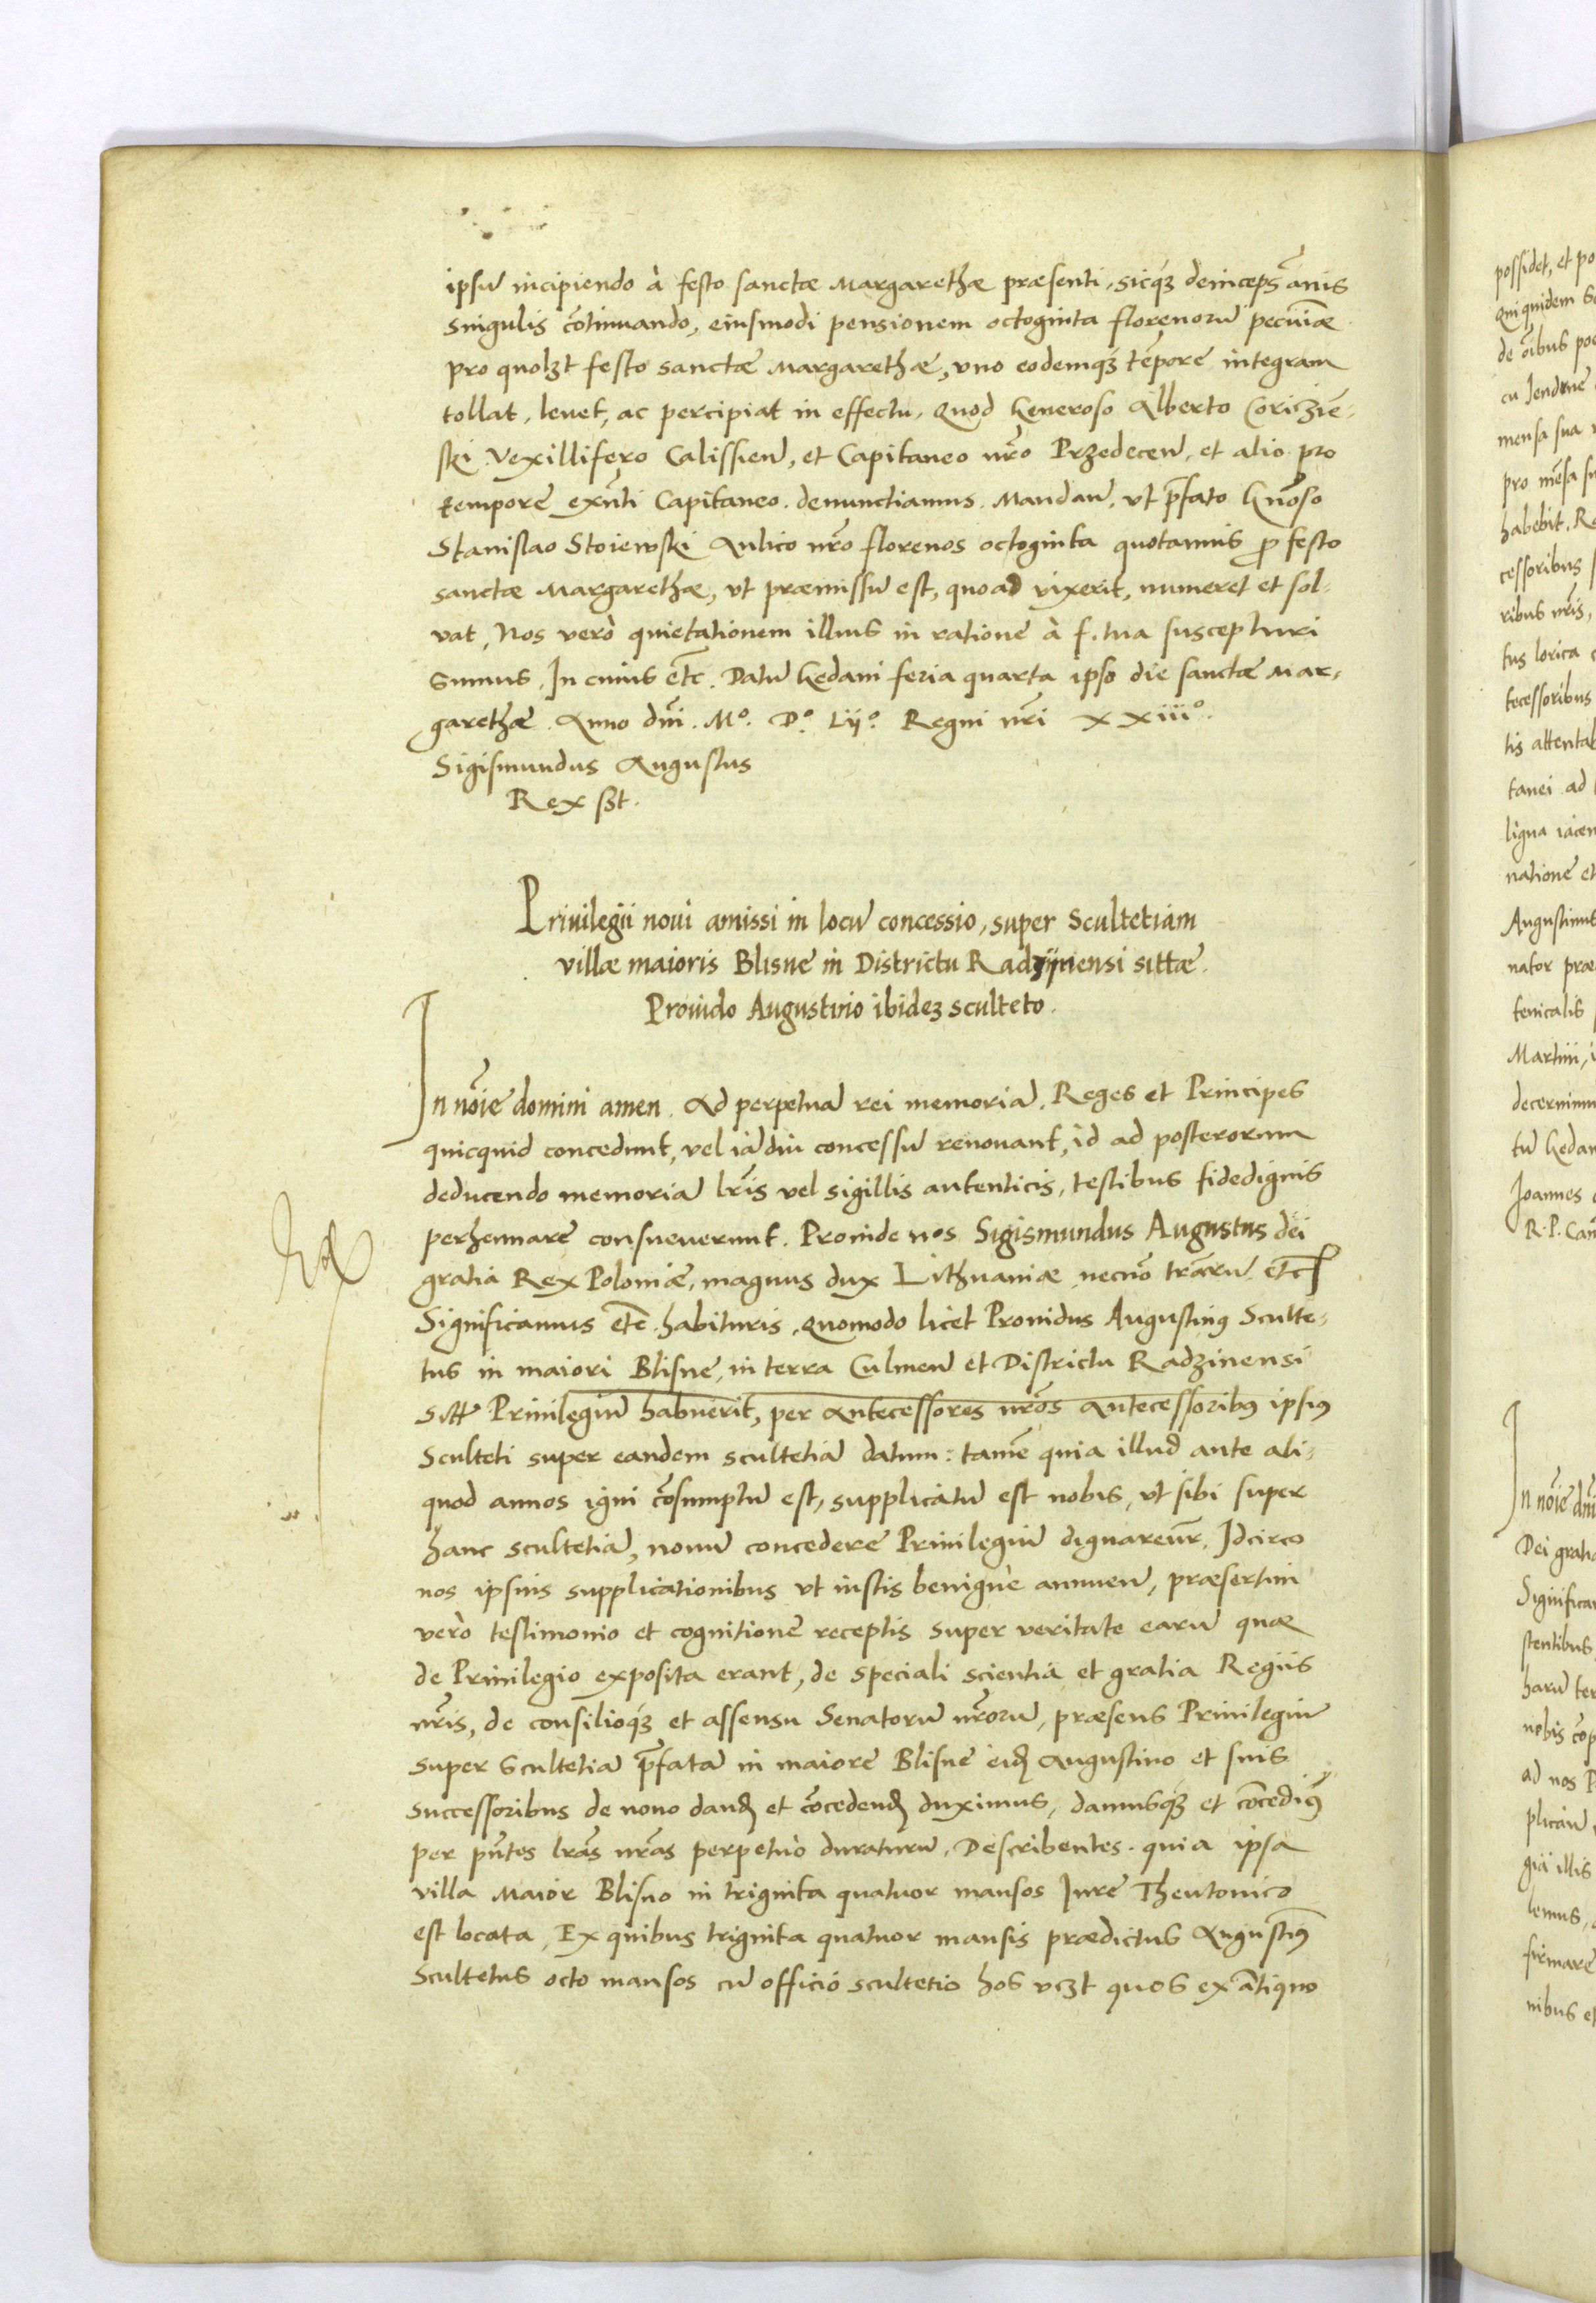 ipsū incipiendo à festo sanctæ Margarethæ præsenti, sicq́ꝫ deinceps āñis
singulis cōtinuando, eiusmodi pensionem octoginta florenorū pecūiæ
pro quolꝫt festo sanctæ Margarethæ, vno eodemq́ꝫ tēpore integram
tollat, leuet, ac percipiat in effectu. Quod Generoso Alberto
ski Vexillifero Calissień, et Capitaneo nr̃o Przedeceń, et alio pro
tempore exñti Capitaneo. denunctiamus. Mandań, vt p̃fato Gñoso
Stanislao Stoiewski Aulico nr̃o florenos octoginta quotannis ꝓ festo
sanctæ Margarethæ, vt præmissū est, quoad vixerit, numeret et sol-
vat, Nos verò quietationem illius in ratione à f. tua suscepturi
sumus. In cuius etc̃. Datū Gedani feria quarta ipso die sanctæ Mar-
garethæ. Anno dñi. Mº. Dº. Lijº. Regni nr̃i XXIIIº.
Sigismundus Augustus
Rex sꝫt.
Priuilegij noui amissi in locū concessio, super Scultetiam
villæ maioris Blisne in Districtu Radzijnensi sittæ.
Prouido Augustino ibideꝫ sculteto.
In nōie domini amen. Ad perpetuā rei memoriā. Reges et Principes
quicquid concedunt, vel iādiu concessū renouant, id ad posterorum
deducendo memoriā lr̃is vel sigillis autenticis, testibus fidedignis
perhennare consueuerunt. Proinde nos Sigismundus Augustus dei
gratia Rex Poloniæ, magnus dux Lithuaniæ necnō tr̃arū etc̃
Significamus etc̃. habituris. Quomodo licet Prouidus Augustinꝰ Sculte-
tus in maiori Blisne, in terra Culmeń et Districtu Radzinensi
sitt Priuilegiū habuerit, per Antecessores nr̃os Antecessoribꝰ ipsiꝰ
Sculteti super eandem scultetiā datum: tamē quia illud ante ali-
quod annos igni cōsumptū est, supplicatū est nobis, vt sibi super
hanc scultetiā, nouū concedere Priuilegiū dignaremr̃. Idcirco
nos ipsius supplicationibus vt iustis benignè annueń, præsertim
verò testimonio et cognitione receptis super veritate earū quæ
de Priuilegio exposita erant, de speciali scientia et gratia Regijs
nr̃is, de consilioq́ꝫ et assensu Senatorū nr̃orū, præsens Priuilegiū
super scultetiā p̃fatā in maiore Blisne eidꝫ Augustino et suis
successoribus de nouo dandꝫ et cōcedendꝫ duximus, damusq́ꝫ et cōcedimꝰ
per pñtes lr̃as nr̃as perpetuò duraturū. Describentes. quia ipsa
villa Maior Blisno in triginta quatuor mansos Iure Theutonico
est locata, Ex quibus triginta quatuor mansis prædictus Augustinꝰ
Scultetus octo mansos cū officio scultetio hos vcꝫt quos ex ātiquo